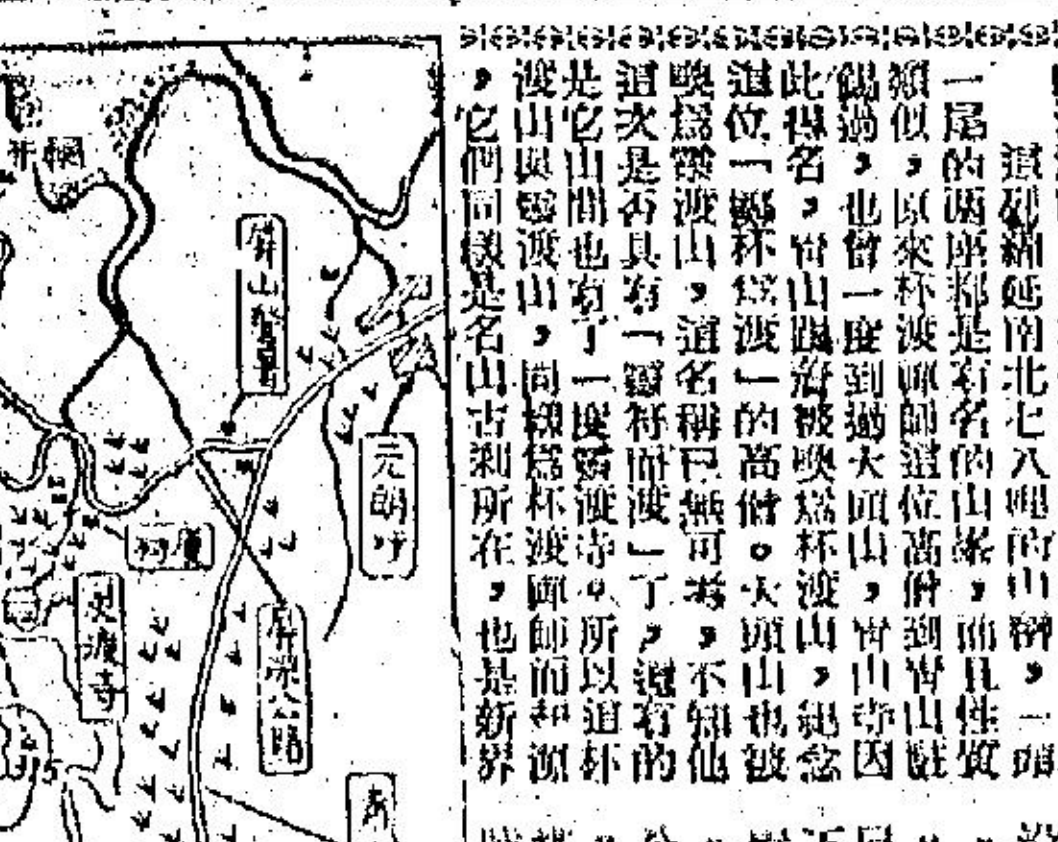 這列綿延南北七八哩的山群，一頭
一尾的兩座都是有名的山岳，而且性質
類似，原來杯渡禪師這位高僧到青山駐
錫過，也曾一度到過大頭山，青山寺因
此得名，青山跟着被喚為杯渡山，紀念
這位「杯為渡」的高僧。大頭山也被
喚為靈渡山，這名稱已無可考，不知他
這次是否具有「靈符而渡」了，還有的
是它山間也有了一度靈渡寺。所以這杯
渡山與靈渡山，同樣為杯渡禪師而和源
，它們同樣是名山古刹所在，也是新界
屏山警署
元朗圩
厦村
灵渡寺
屏深公路